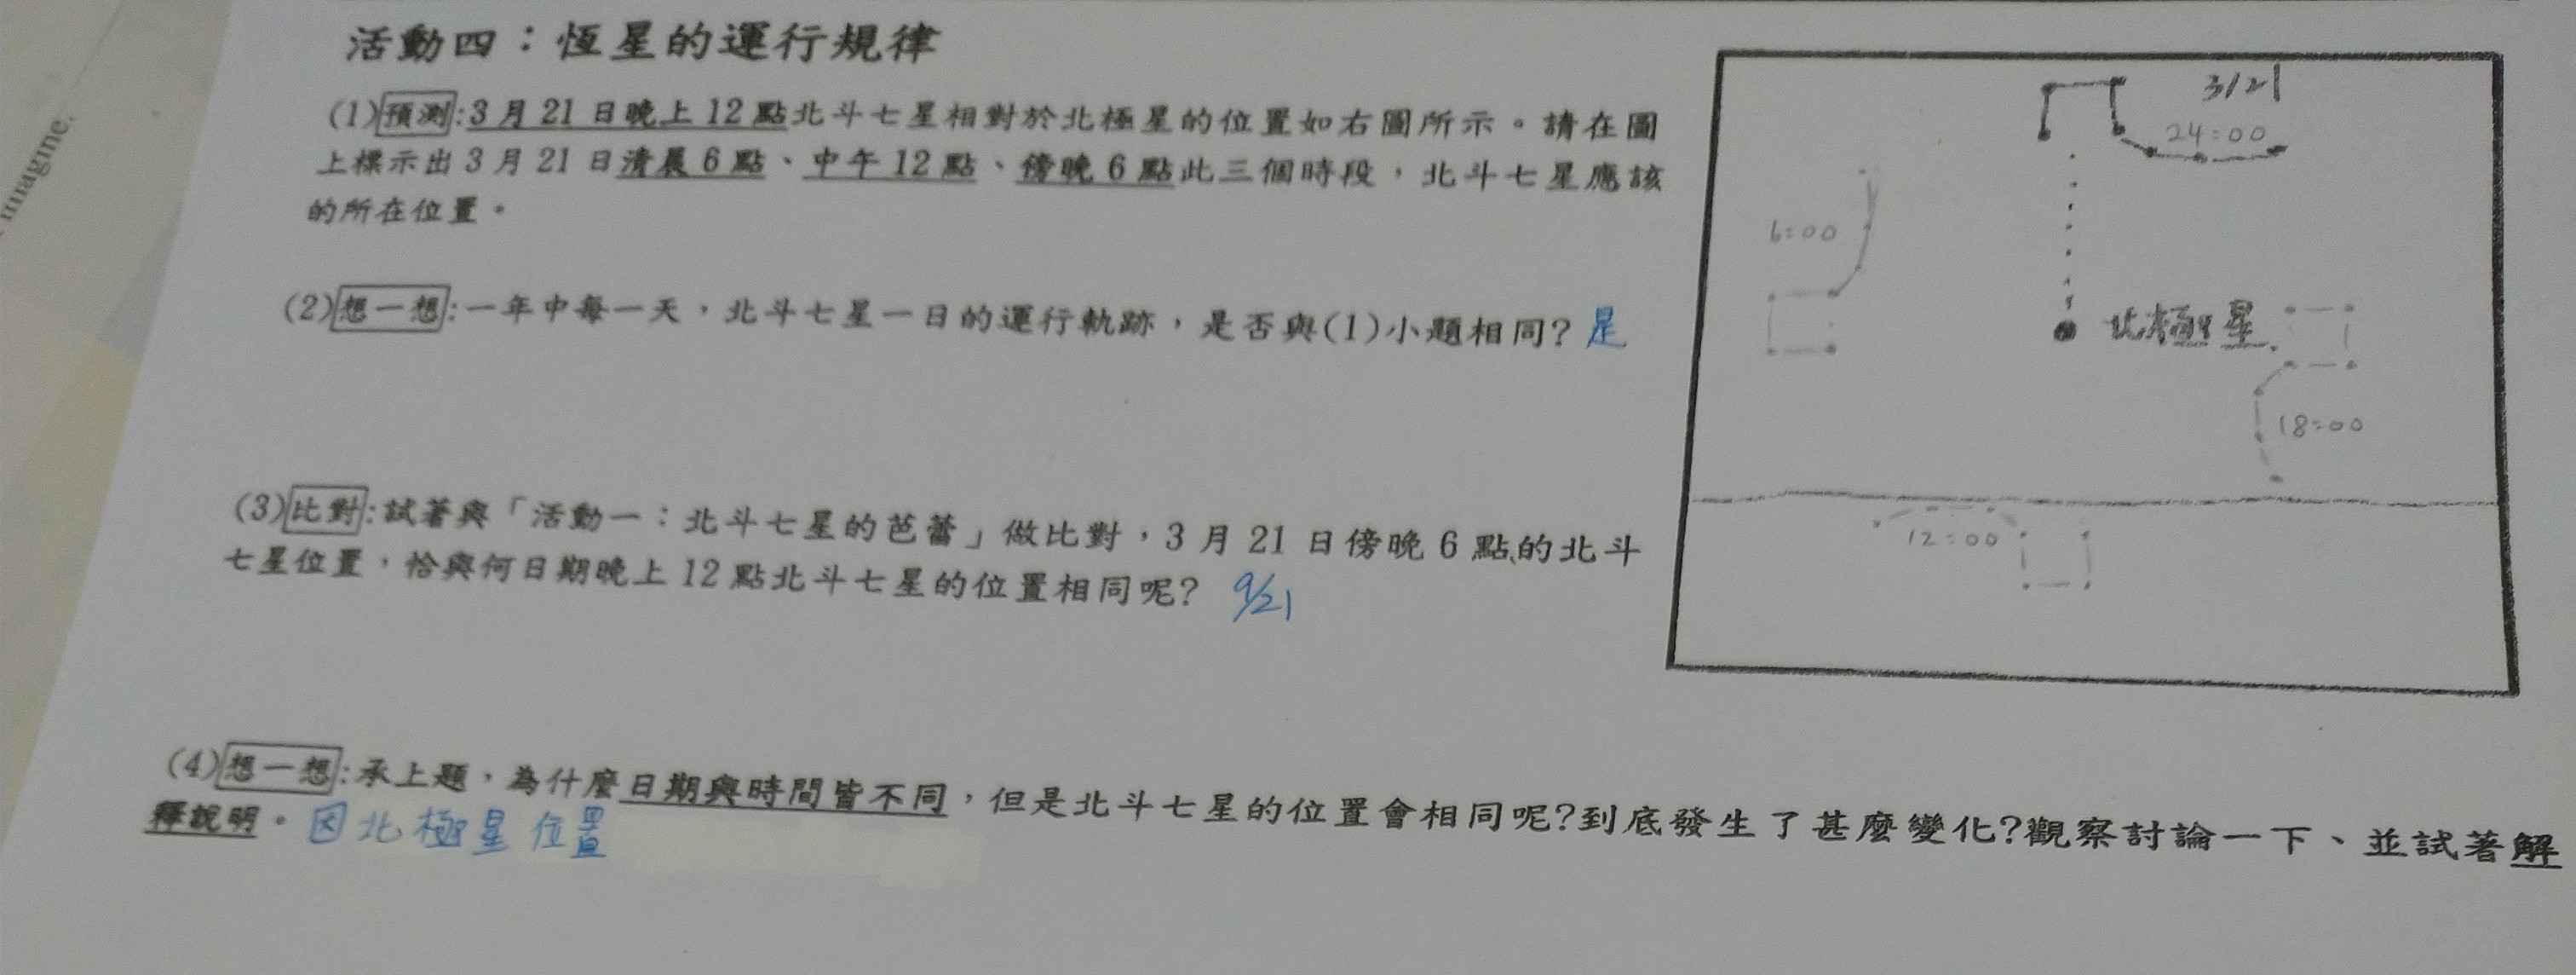 imagine.
活動四：恆星的運行規律
(1)預測:3月21日晚上12點北斗七星相對於北極星的位置如右圖所示。請在圖
上標示出3月21日清晨6點、中午12點、傍晚6點此三個時段，北斗七星應該
的所在位置。
(2)想一想:一年中每一天，北斗七星一日的運行軌跡，是否與(1)小題相同? 是
(3)比對:試著與「活動一：北斗七星的芭蕾」做比對，3月21日傍晚6點的北斗
七星位置，恰與何日期晚上12點北斗七星的位置相同呢? 9/21
(4)想一想:承上題，為什麼日期與時間皆不同，但是北斗七星的位置會相同呢?到底發生了甚麼變化?觀察討論一下、並試著解
釋說明。因北極星位置
3/21
24:00
6:00
北極星
18:00
12:00